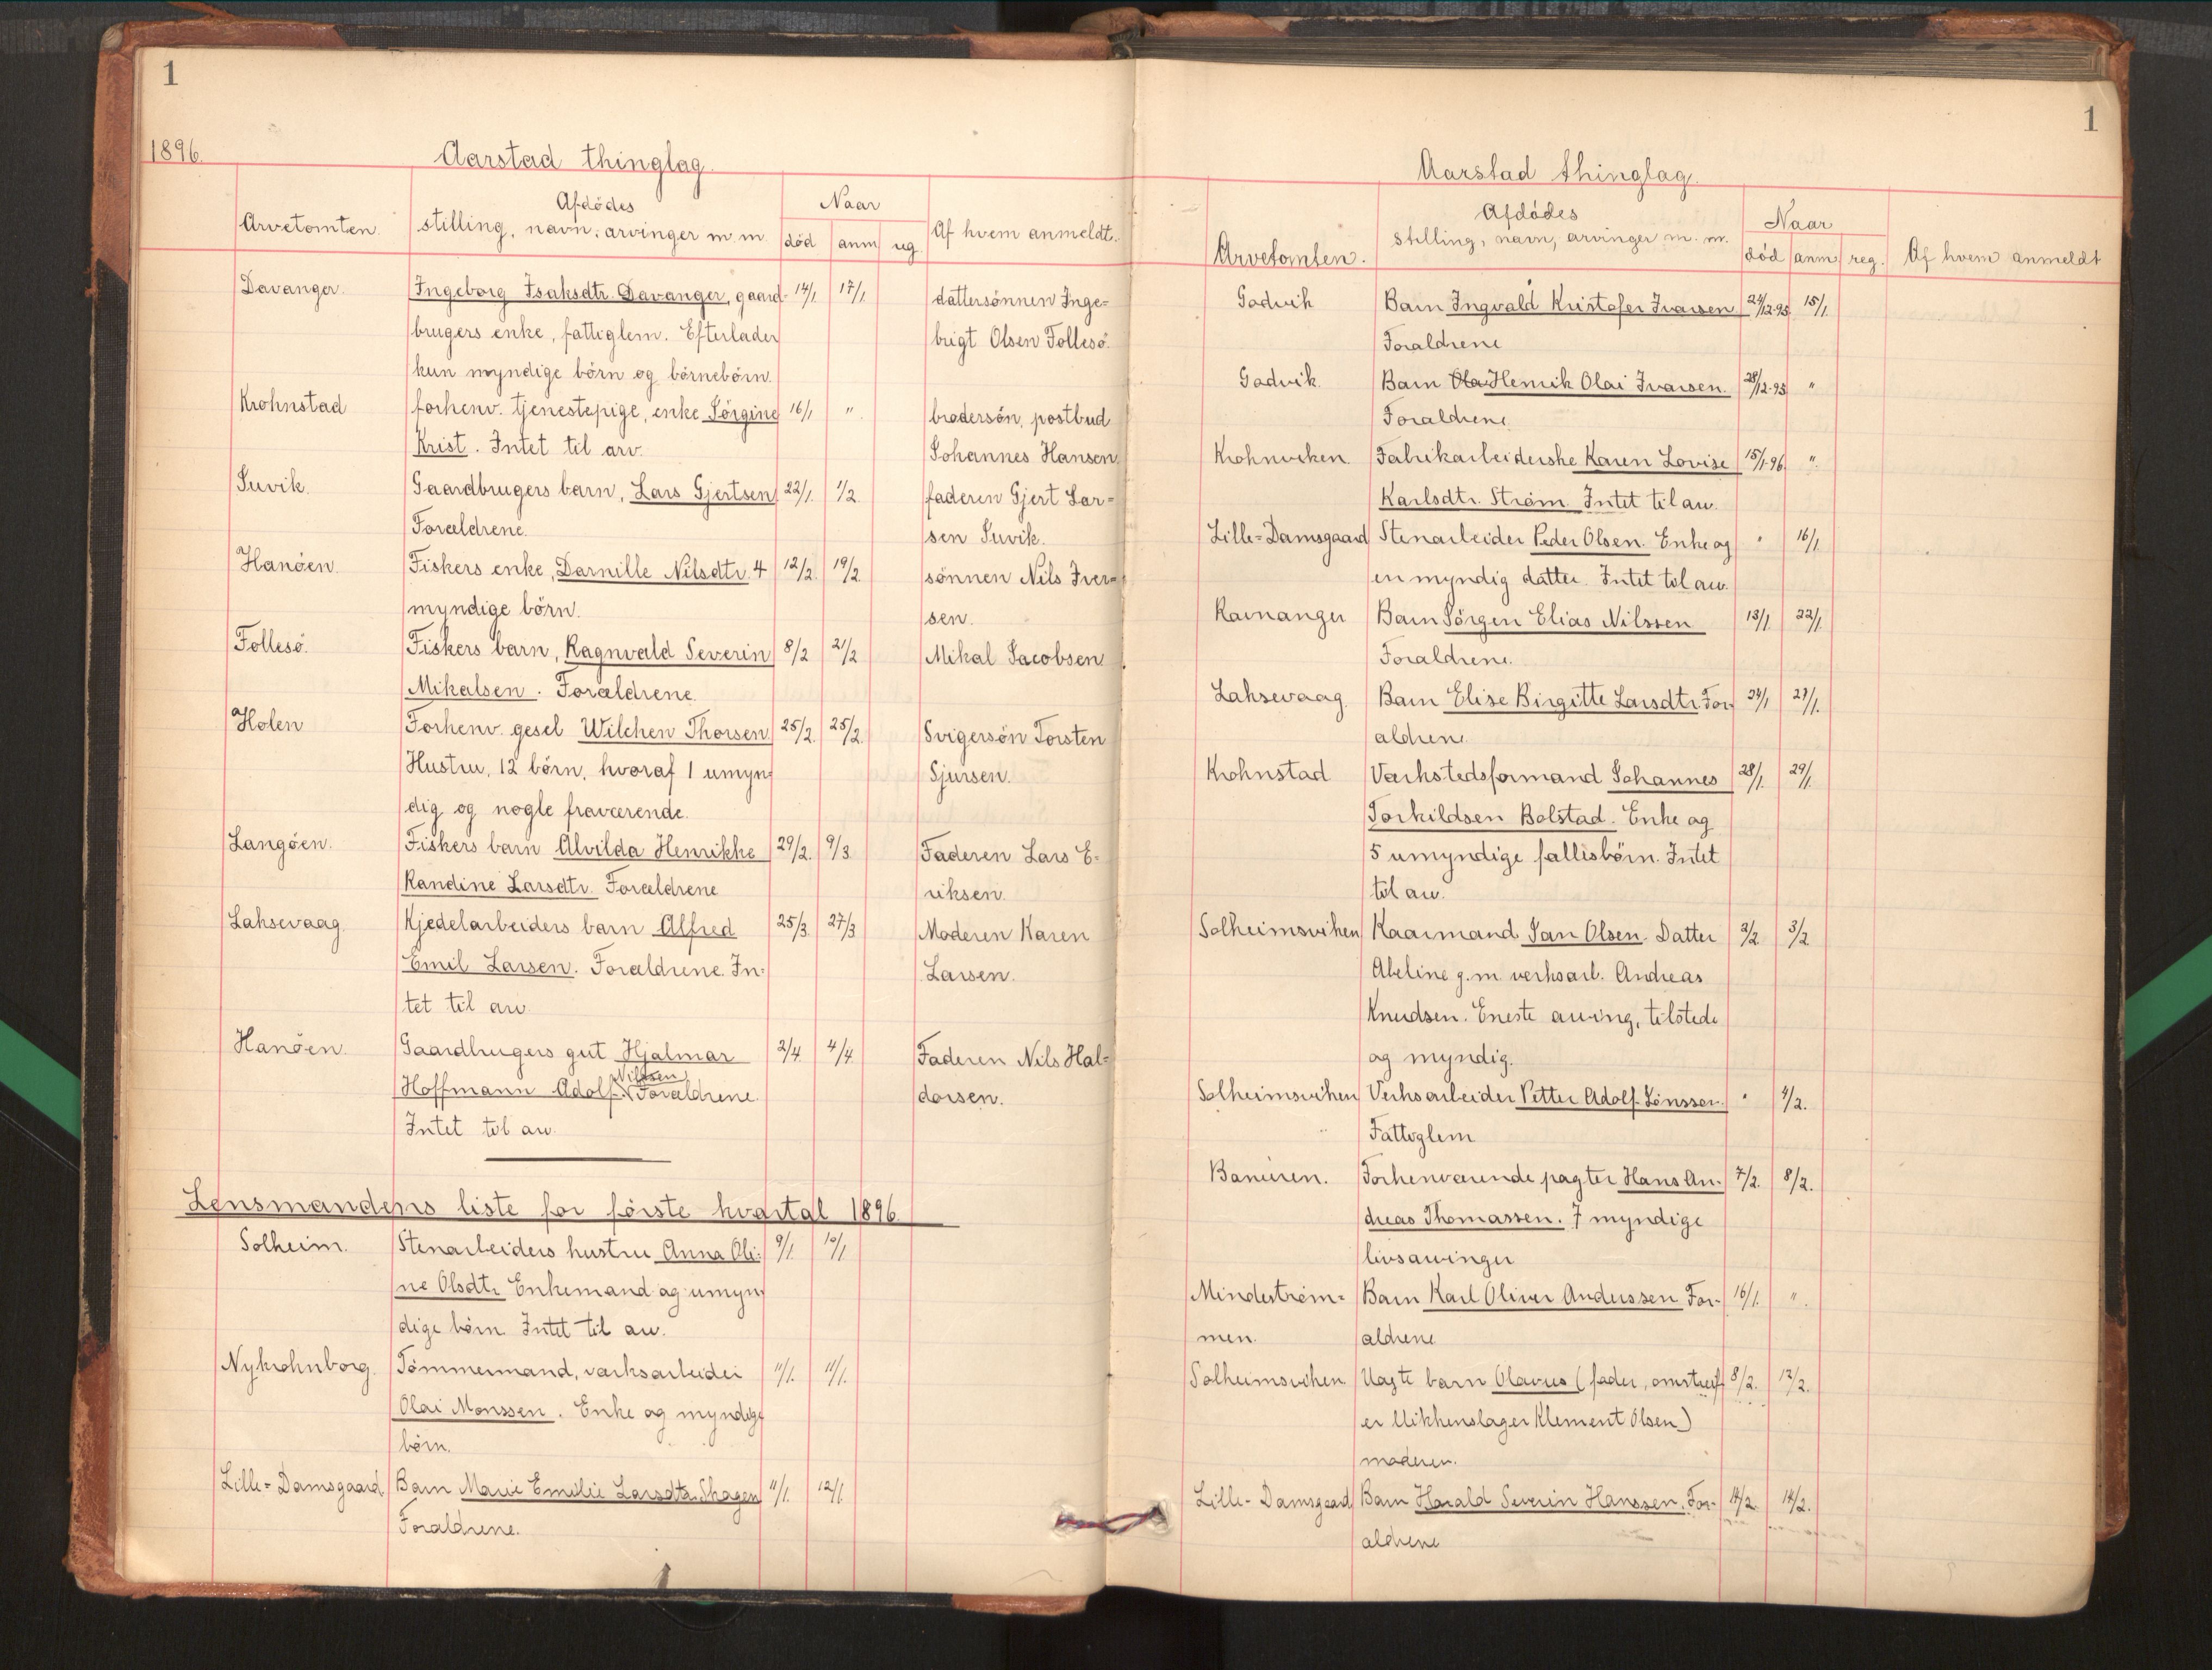 1
1896.
Aarstad thinglag.
Arvetomten.
Afdödes
stilling, navn, arvinger m. m.
Naar
död
anm
reg
Af hvem anmeldt.
Davanger. Ingeborg Isaksdtr. Davanger, gaard- 14/1 17/1 dattersönnen Inge=
brugers enke, fattiglem. Efterlader brigt Olsen Follesö.
kun myndige börn og börnebörn.
Krohnstad forhenv. tjenestepige, enke Jörgine 16/1 " brodersön, postbud
Krist. Intet til arv. Johannes Hansen.
Juvik. Gaardbrugers barn, Lars Gjertsen 22/1. 1/2 faderen Gjert Lar=
Forældrene. sen Juvik.
Hanöen. Fiskers enke, Darnille Nilsdtr. 4 12/2. 19/2 sönnen Nils Iver=
myndige börn. sen.
Follesö. Fiskers barn, Ragnvald Severin 8/2 21/2 Mikal Jacobsen
Mikalsen. Forældrene
Holen Forhenv. gesel Wilchen Thorsen 25/2. 25/2. Svigersön Torsten
Hustru, 12 börn, hvoraf 1 umyn- Sjursen.
dig og nogle fraværende.
Langöen. Fiskers barn Alvilda Henrikke 29/2. 9/3 Faderen Lars E-
Randine Larsdtr. Forældrene riksen.
Laksevaag Kjedelarbeiders barn Alfred 25/3. 27/3 Moderen Karen
Emil Larsen. Forældrene. In- Larsen.
tet til arv.
Hanöen. Gaardbrugers gut Hjalmar 2/4. 4/4. Faderen Nils Hal=
Hoffmann Adolf Nilssen. Forældrene. dorsen.
Intet til arv.
Lensmandens liste for förste kvartal 1896.
Solheim. Stenarbeiders hustru Anna Oli- 9/1. 10/1
ne Olsdtr. Enkemand og umyn-
dige börn. Intet til arv.
Nykrohnborg. Tömmermand, værksarbeider 11/1. 11/1.
Olai Monssen. Enke og myndige
börn.
Lille=Damsgaard Barn Marie Emilie Larsdtr. Skagen 11/1. 12/1.
Forældrene.
1
Aarstad thinglag.
Arvetomten.
Afdödes
stilling, navn, arvinger m. m.
Naar
död
anm
reg.
Af hvem anmeldt
Godvik Barn Ingvald Kristofer Ivarsen 24/12-95 15/1.
Forældrene
Godvik. Barn Ola Henrik Olai Ivarsen. 28/12-95 "
Forældrene
Krohnviken. Fabrikarbeiderske Karen Lovise 15/1-96 ".
Karlsdtr. Ström. Intet til arv.
Lille=Damsgaard Stenarbeider Peder Olsen. Enke og " 16/1
en myndig datter. Intet til arv.
Ravnanger Barn Jörgen Elias Nilssen 13/1. 22/1.
Forældrene.
Laksevaag. Barn Elise Birgitte Larsdtr. For- 24/1 27/1.
ældrene.
Krohnstad Værkstedsformand Johannes 28/1. 29/1.
Torkildsen Bolstad. Enke og
5 umyndige fællisbörn. Intet
til arv.
Solheimsviken Kaarmand Jan Olsen. Datter 2/2 3/2
Abeline g. m. verksarb. Andreas
Knudsen. Eneste arving, tilstede
og myndig.
Solheimsviken Verksarbeider Petter Adolf Jönsson. " 4/2.
Fattiglem
Baneren. Forhenværende pagter Hans An- 7/2. 8/2.
dreas Thomassen. 7 myndige
livsarvinger
Mindeström= Barn Karl Oliver Anderssen. For- 16/1. ".
men. ældrene
Solheimsviken Uægte barn Olavus (fader, omstreif- 8/2. 12/2.
er blikkenslager Klement Olsen)
moderen.
Lille-Damsgaard Barn Harald Severin Hanssen. For- 14/2. 14/2.
ældrene